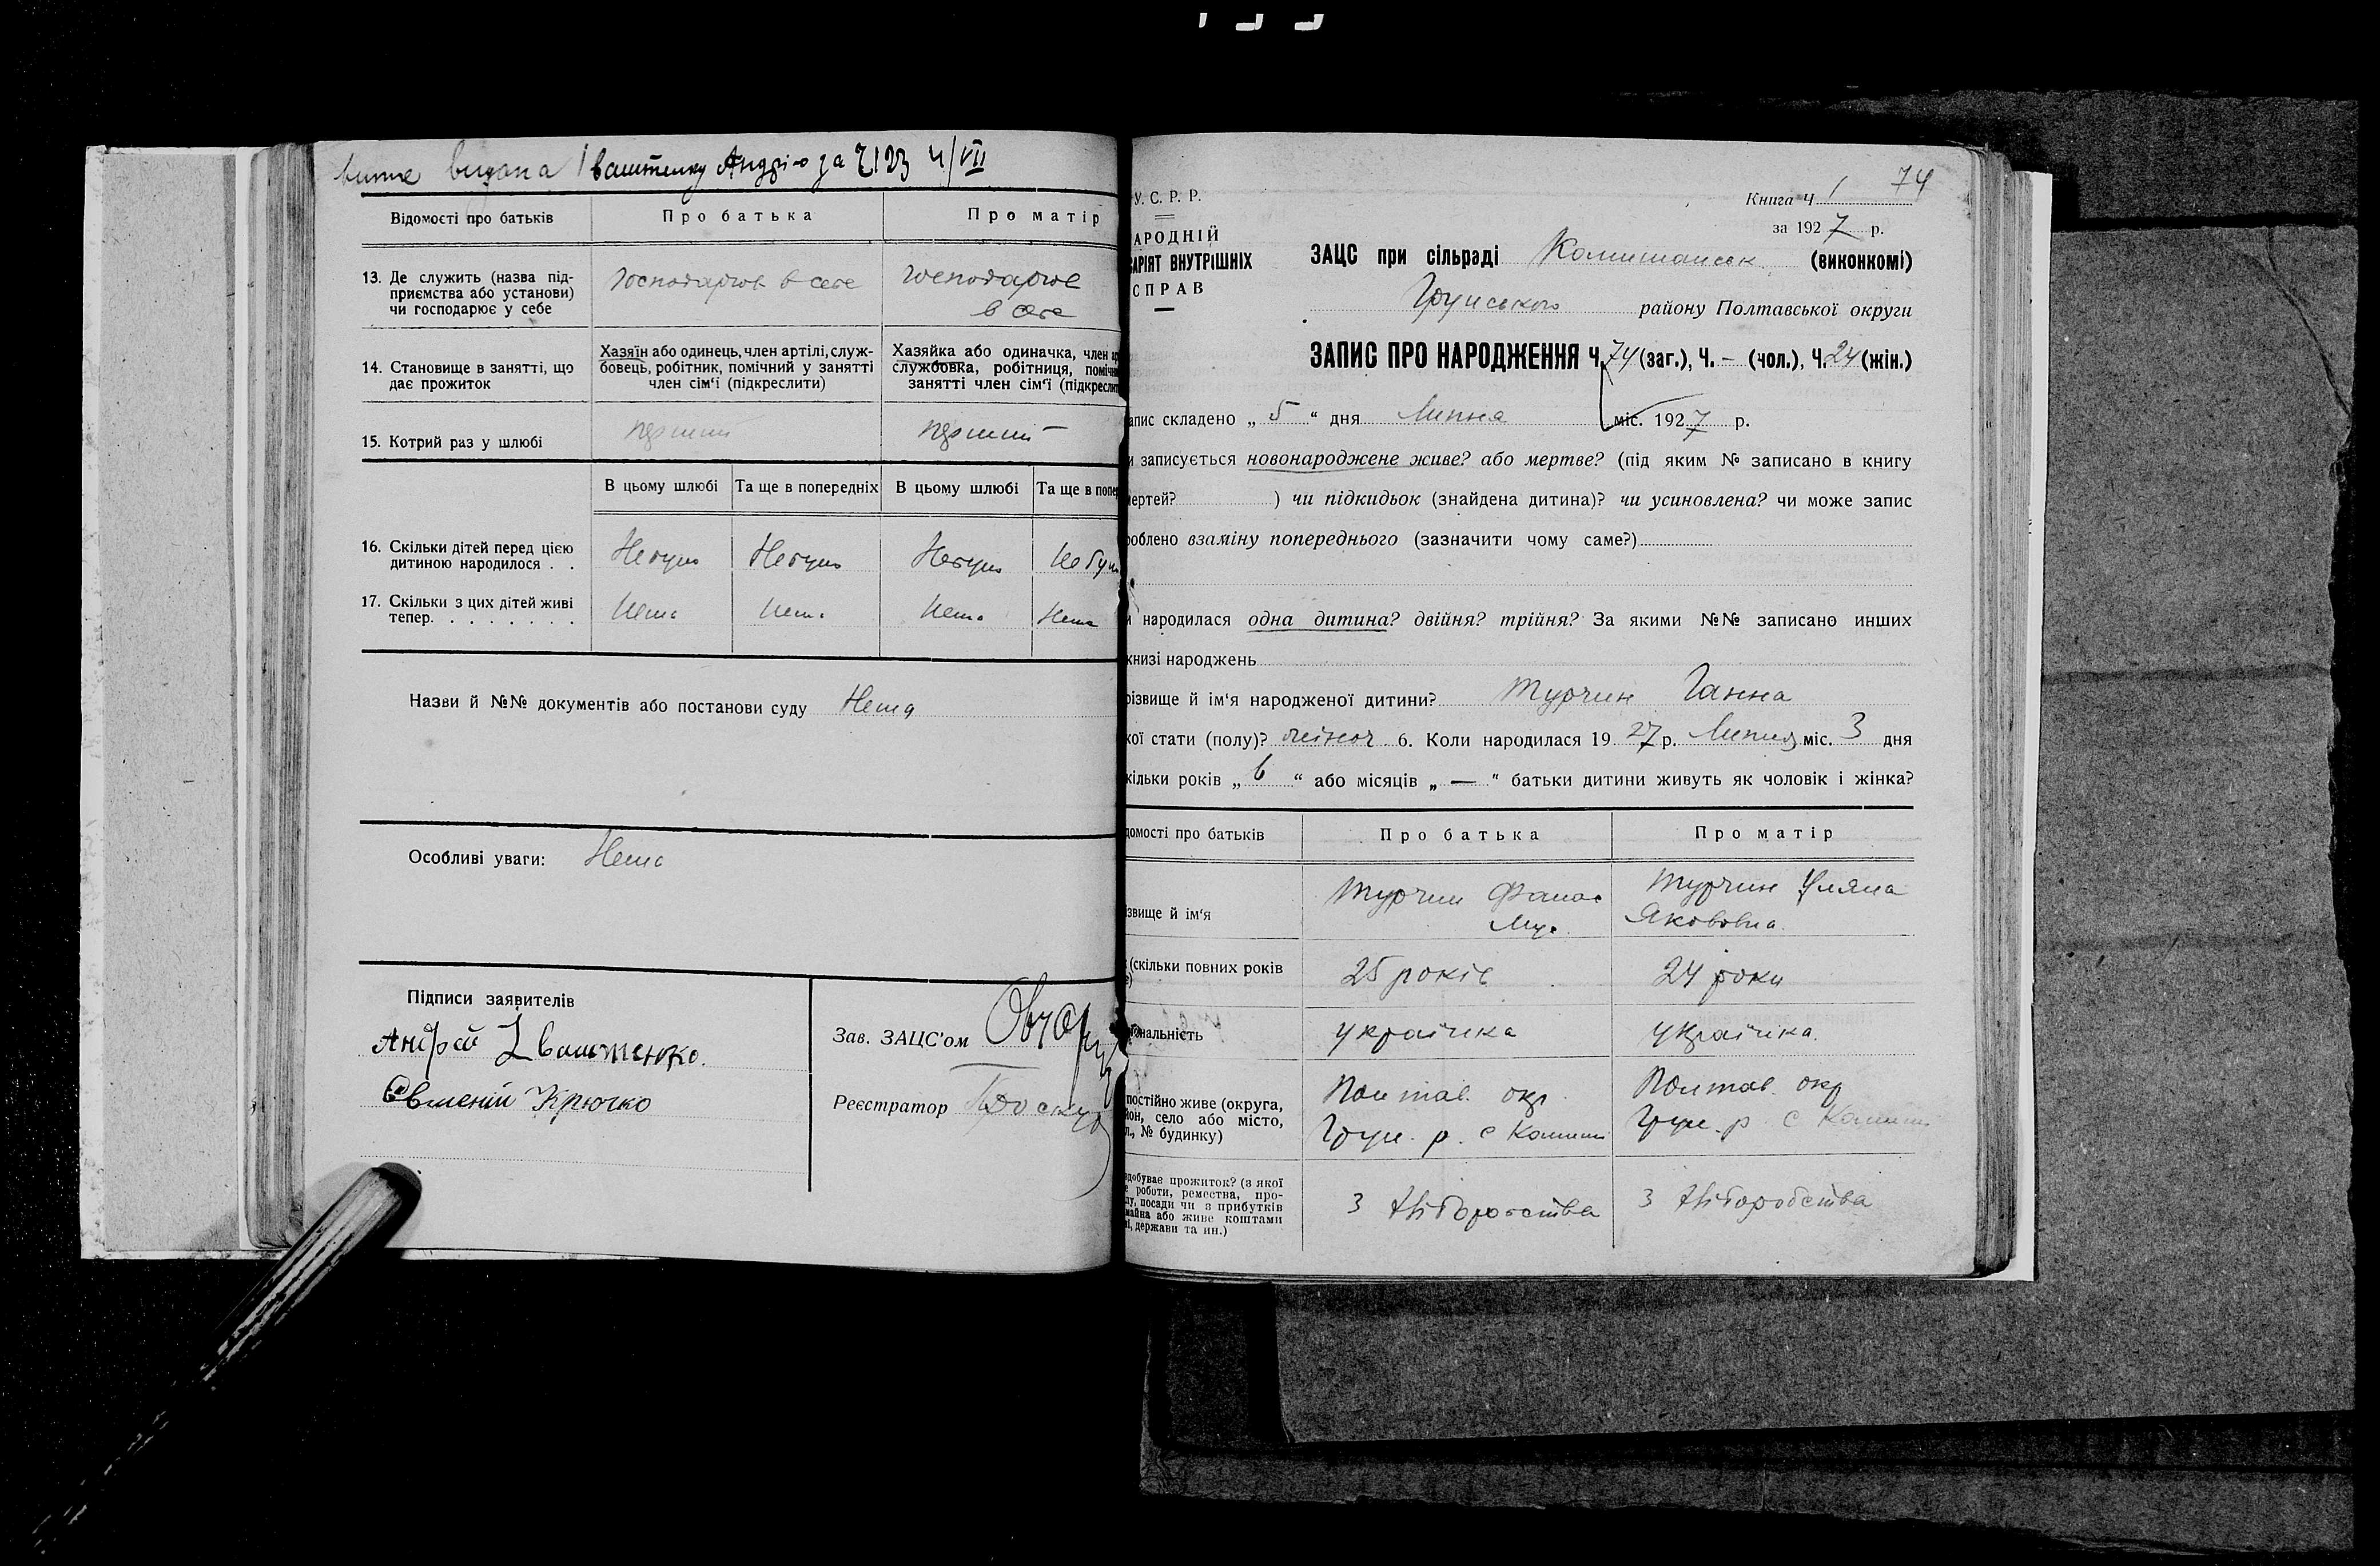 видана Іваштенку Андрію за Ч123 4/VII
Відомості про батьків
Про батька
Про матір
13. Де служить (назва під-
приємства або установи)
чи господарює у себе
господарює в себе
господарює
в себе
14. Становище в занятті, що
дає прожиток
Хазяїн або одинець, член артілі, служ-
бовець, робітник, помічний у занятті
член сім'ї (підкреслити)
Хазяйка або одиначка, член ар
службовка, робітниця, помічн
занятті член сім'ї (підкреслит
15. Котрий раз у шлюбі
перший
перший
В цьому шлюбі
Та ще в попередніх
В цьому шлюбі
Та ще в попер
16. Скільки дітей перед цією
дитиною народилося . .
Небуло
Небуло
Небуло
Небул
17. Скільки з цих дітей живі
тепер. . . . . . . .
Нема
Нема
Нема
Нема
Назви й №№ документів або постанови суду Нема
Особливі уваги: Нема
Підписи заявителів
Андрей Іваштенко.
Евгеній Крючко
Зав. ЗАЦС'ом
Реєстратор
74
У. С. Р. Р.
АРОДНІЙ
АРІЯТ ВНУТРІШНІХ
СПРАВ
Книга Ч 1
за 1927 р.
ЗАЦС при сільраді Комишанськ. (виконкомі)
Грунського району Полтавської округи
ЗАПИС ПРО НАРОДЖЕННЯ Ч. 74 (заг.), Ч. – (чол.), Ч. 24 (жін.)
апис складено „ 5 “ дня Липня міс. 1927 р.
и записується новонароджене живе? або мертве? (під яким № записано в книгу
мертей? ) чи підкидьок (знайдена дитина)? чи усиновлена? чи може запис
роблено взаміну попереднього (зазначити чому саме?)
и народилася одна дитина? двійня? трійня? За якими №№ записано инших
книзі народжень
різвище й ім'я народженої дитини? Турчин Ганна
кої стати (полу)? жіноч 6. Коли народилася 1927 р. Липня міс. 3 дня
кільки років „ 6 “ або місяців „ — “ батьки дитини живуть як чоловік і жінка?
домості про батьків
Про батька
Про матір
ізвище й ім'я
Турчин Фанас
Турчин Уляна
Яковівна
(скільки повних років
25 років
24 роки
ональність
українка
українка.
постійно живе (округа,
йон, село або місто,
л., № будинку)
Полтав. окр.
Грун. р. с Комиш
Полтав. окр
Грун. р с Комиш
здобуває прожиток? (з якої
е роботи, ремества, про-
ду, посади чи з прибутків
майна або живе коштами
ні, держави та ин.)
З хліборобства
З хліборобства